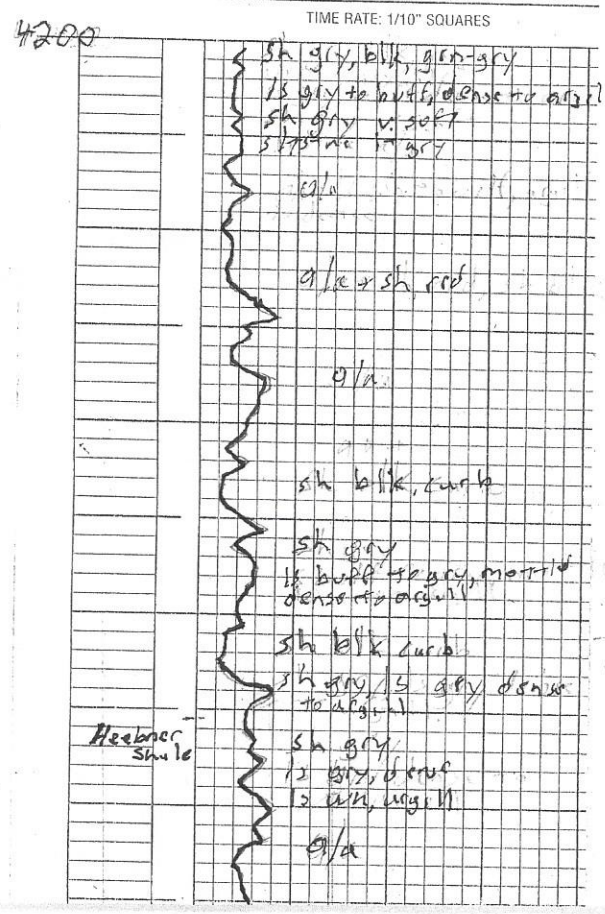 TIME RATE: 1/10" SQUARES
4200
sh gry, blk, grn-gry
ls gry to buff, dense to argill
sh gry v. soft
sltstne lt gry
a/a
a/a + sh red
a/a
sh blk, carb
sh gry
ls buff to gry, mottld
dense to argill
sh blk carb
sh gry, ls gry dense
to argill
Heebner
Shale
sh gry
ls gry, dense
ls wh, argill
a/a